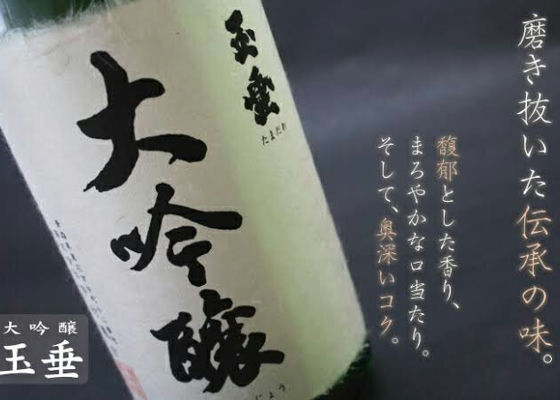 磨き抜いた伝承の味。
馥郁とした香り、
まろやかな口当たり。
そして、奥深いコク。
玉垂
たまだれ
大吟醸
じょう
大吟醸
玉垂